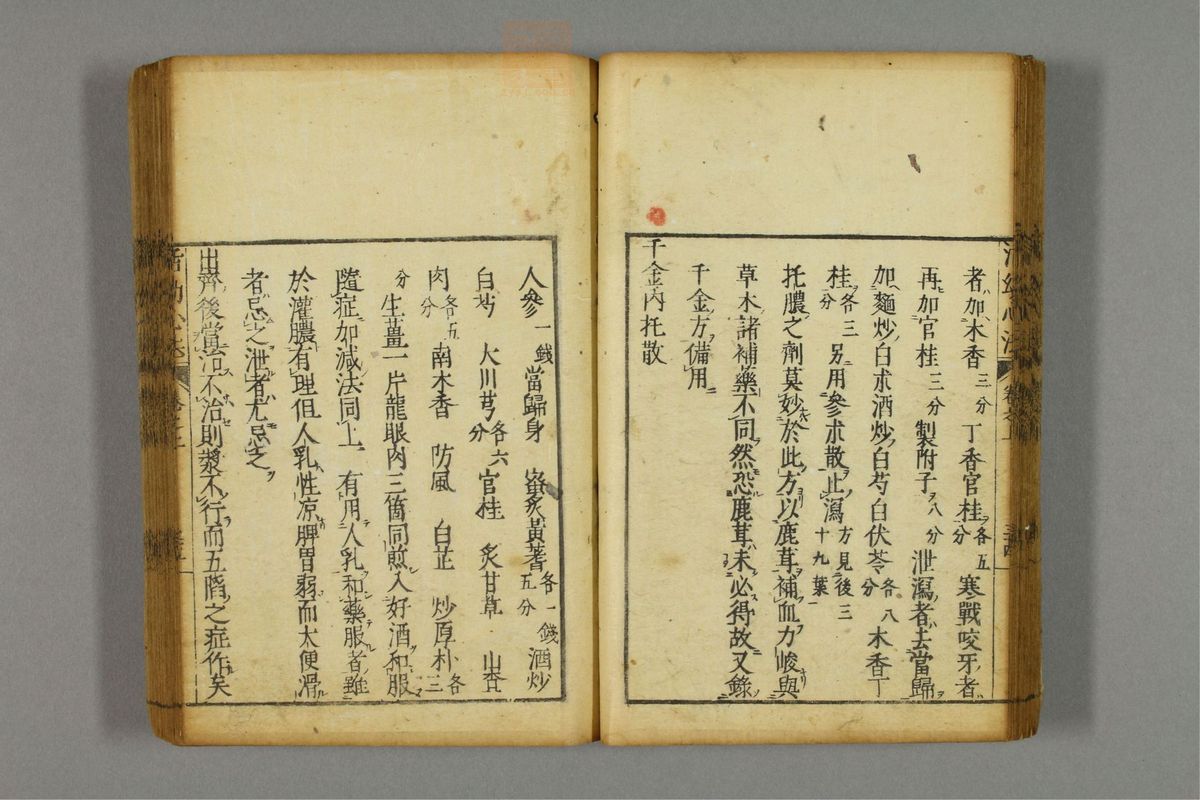 者加木香三分丁香官桂各五分寒戰咬牙者
再加官桂三分製附子八分泄瀉者去當歸
加麵炒白朮酒炒白芍白伏苓各八分木香丁
桂各三分另用參朮散止瀉方見後三十九葉
托膿之劑莫妙於此方以鹿茸補血力峻與
草木諸補藥不同然恐鹿茸未必得故又錄
千金方備用
千金內托散
人參一錢當歸身 蜜炙黃蓍各一錢五分酒炒
白芍 大川芎各六分官桂 炙甘草 山查
肉各五分南木香 防風 白芷 炒厚朴各三
分生薑一片龍眼肉三箇同煎入好酒和服
隨症加減法同上 有用人乳和藥服者雖
於灌膿有理但人乳性凉脾胃弱而大便滑
者忌之泄者尤忌之
出齊後當治不治則漿不行而五陷之症作矣